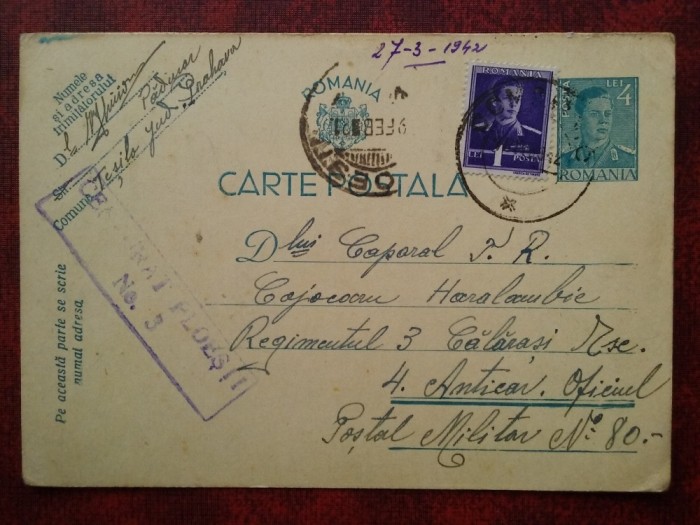 27-3-1942
Numele
și adresa
trimițătorului
D.
Pădusar
Str.
Comuna Teșila Jud. Prahova
ROMANIA
CARTE POSTALA
ROMANIA
LEI 1 POSTA
LEI 4
ROMANIA
CENZURAT PLOEȘTI
No. 3
Pe această parte se scrie
numai adresa
Dlui Caporal T. R.
Cojocaru Haralambie
Regimentul 3 Călărași Esc.
4. Anticar. Oficiul
Poștal Militar No 80.-